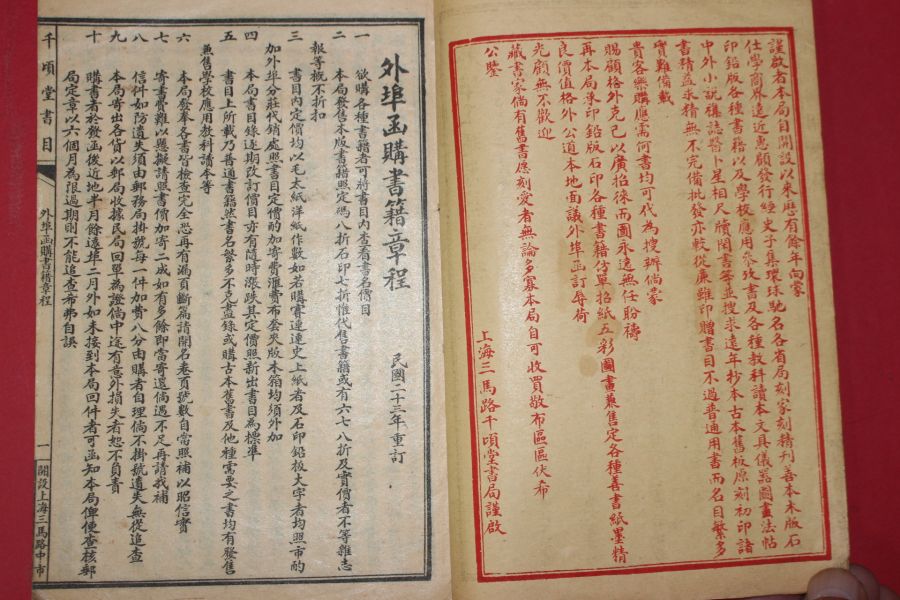 謹啟者本局自開設以來歷有餘年向蒙
仕學商界遠近惠顧發行經史子集環球馳名各省局刻家刻精刊善本木版石
印鉛版各種書籍以及學校應用參攷書及各種教科讀本文具儀器圖畫法帖
中外小說襍誌醫卜星相尺牘閑書等並搜求遠年抄本古本舊板原刻初印諸
書精益求精無不完備批發亦較從廉雖印贈書目不過普通用書而名目繁多
實難備載
貴客樂購應需何書均可代為搜辦倘蒙
賜顧格外克己以廣招徠而圖永遠無任盼禱
再本局承印鉛版石印各種書籍仿單招紙五彩圖畫兼售定各種善書紙墨精
良價值格外公道本地面議外埠函訂辱荷
光顧無不歡迎
藏書家倘有舊書愿刻愛者無論多寡本局自可收買敬布區區伏希
公鑒
上海三馬路千頃堂書局謹啟
外埠函購書籍章程 民國二十三年重訂
一 欲購各種書籍者可將書目內查看書名價目
二 本局發售本版書籍照定碼八折石印七折惟代售書籍或有六七八折及實價者不等雜志
報等概不折扣
三 書目內定價均以毛太紙洋紙作數如若購賽連連史上紙者及石印鉛板大字者均照市酌
加外埠分莊代銷處照書目定價酌加寄費滙費布套夾版木箱均須外加
四 本局書目錄逐期改訂價目亦有隨時漲跌其定價照新出書目為標準
五 書目上所載乃普通書籍然書名繁多不克盡錄或購古本舊書及他種需要之書均有發售
兼售學校應用教科讀本等
六 本局發奉各書皆檢查完全恐再有漏頁斷篇請開名卷頁號數自當照補以昭信實
七 寄書費難以懸擬請照書價加寄二成如有多餘即當寄還倘遇不足再請我補
八 信件如防遺失須由郵務局掛號每一件加費八分由購者自理倘不掛號遺失無從追查
九 本局寄出各貨以郵局收據民局回單為證倘中途有意外損失者恕不負責
十 購書者於發函後近地半月餘遠埠二月外如未接到本局回件者可函知本局俾便查核郵
局定章以六個月為限過期則不能追查希弗自誤
千頃堂書目
外埠函購書籍章程
一
開設上海三馬路中市